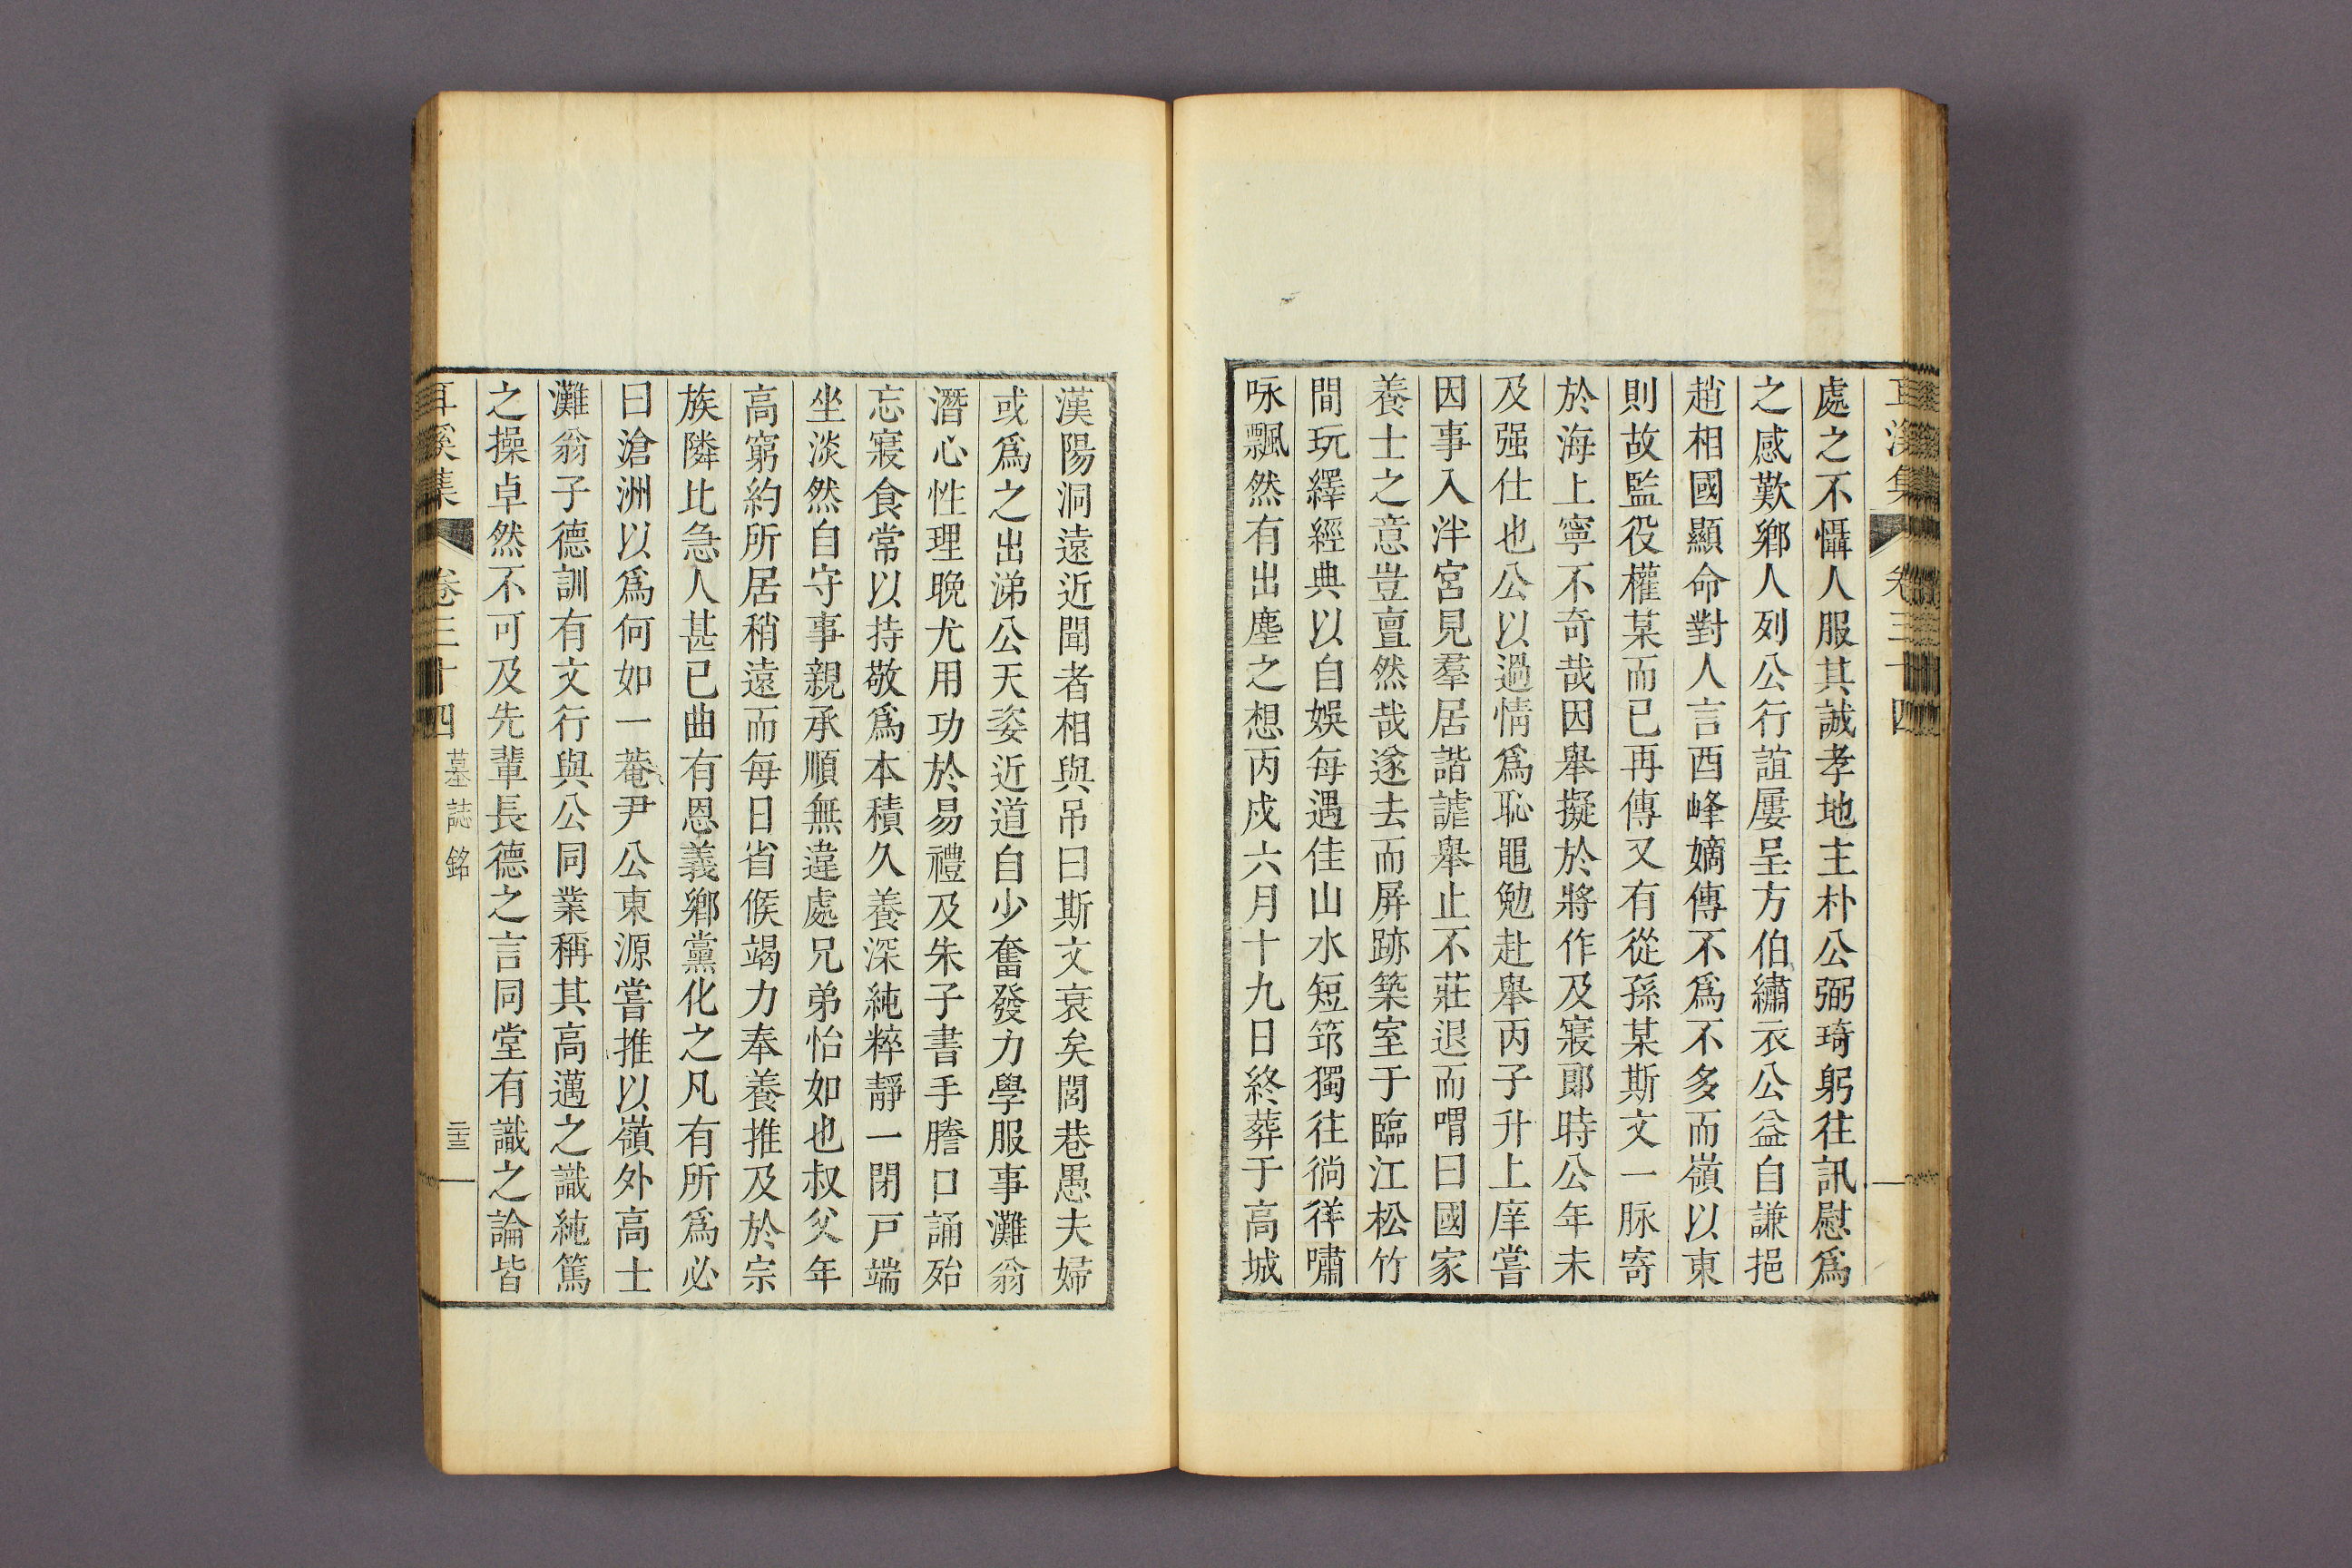 處之不懾人服其誠孝地主朴公弼琦躬往訊慰爲
之感歎鄉人列公行誼屢呈方伯繡衣公益自謙挹
趙相國顯命對人言西峰嫡傳不爲不多而嶺以東
則故監役權某而已再傳又有從孫某斯文一脉寄
於海上寧不奇哉因舉擬於將作及寢郞時公年未
及强仕也公以過情爲恥黽勉赴舉丙子升上庠嘗
因事入泮宮見羣居諧謔舉止不莊退而喟曰國家
養士之意豈亶然哉遂去而屛跡築室于臨江松竹
間玩繹經典以自娛每遇佳山水短筇獨往徜徉嘯
咏飄然有出塵之想丙戌六月十九日終葬于高城
漢陽洞遠近聞者相與吊曰斯文衰矣閭巷愚夫婦
或爲之出涕公天姿近道自少奮發力學服事灘翁
潛心性理晩尤用功於易禮及朱子書手謄口誦殆
忘寢食常以持敬爲本積久養深純粹靜一閉戶端
坐淡然自守事親承順無違處兄弟怡如也叔父年
高窮約所居稍遠而每日省候竭力奉養推及於宗
族隣比急人甚已曲有恩義鄉黨化之凡有所爲必
曰滄洲以爲何如一菴尹公東源嘗推以嶺外高士
灘翁子德訓有文行與公同業稱其高邁之識純篤
之操卓然不可及先輩長德之言同堂有識之論皆
耳溪集 卷三十四 墓誌銘 二十三